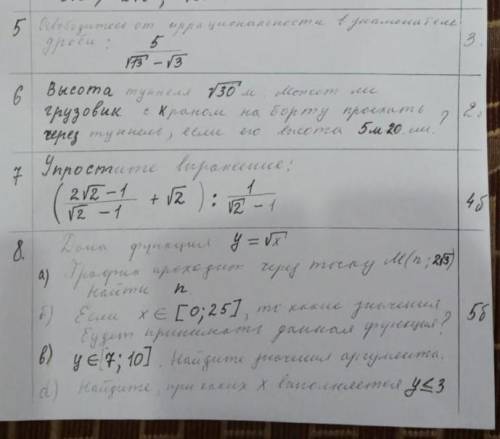 5 Освободитесь от иррациональности в знаменателе
дроби: 5/(√13 − √3) 3.
6 Высота туннеля √30 м. Может ли
грузовик с храном на борту проехать
через туннель, если его высота 5 м 20 см. ? 2б
7 Упростите выражение:
((2√2 − 1)/(√2 − 1) + √2) : 1/(√2 − 1) 4б
8. Дана функция y = √x
а) График проходит через точку M(n; 2√3)
Найти n
б) Если x ∈ [0; 25], то какие значения
будет принимать данная функция? 5б
в) y ∈ [7; 10]. Найдите значения аргумента.
d) Найдите, при каких x выполняется y ≤ 3